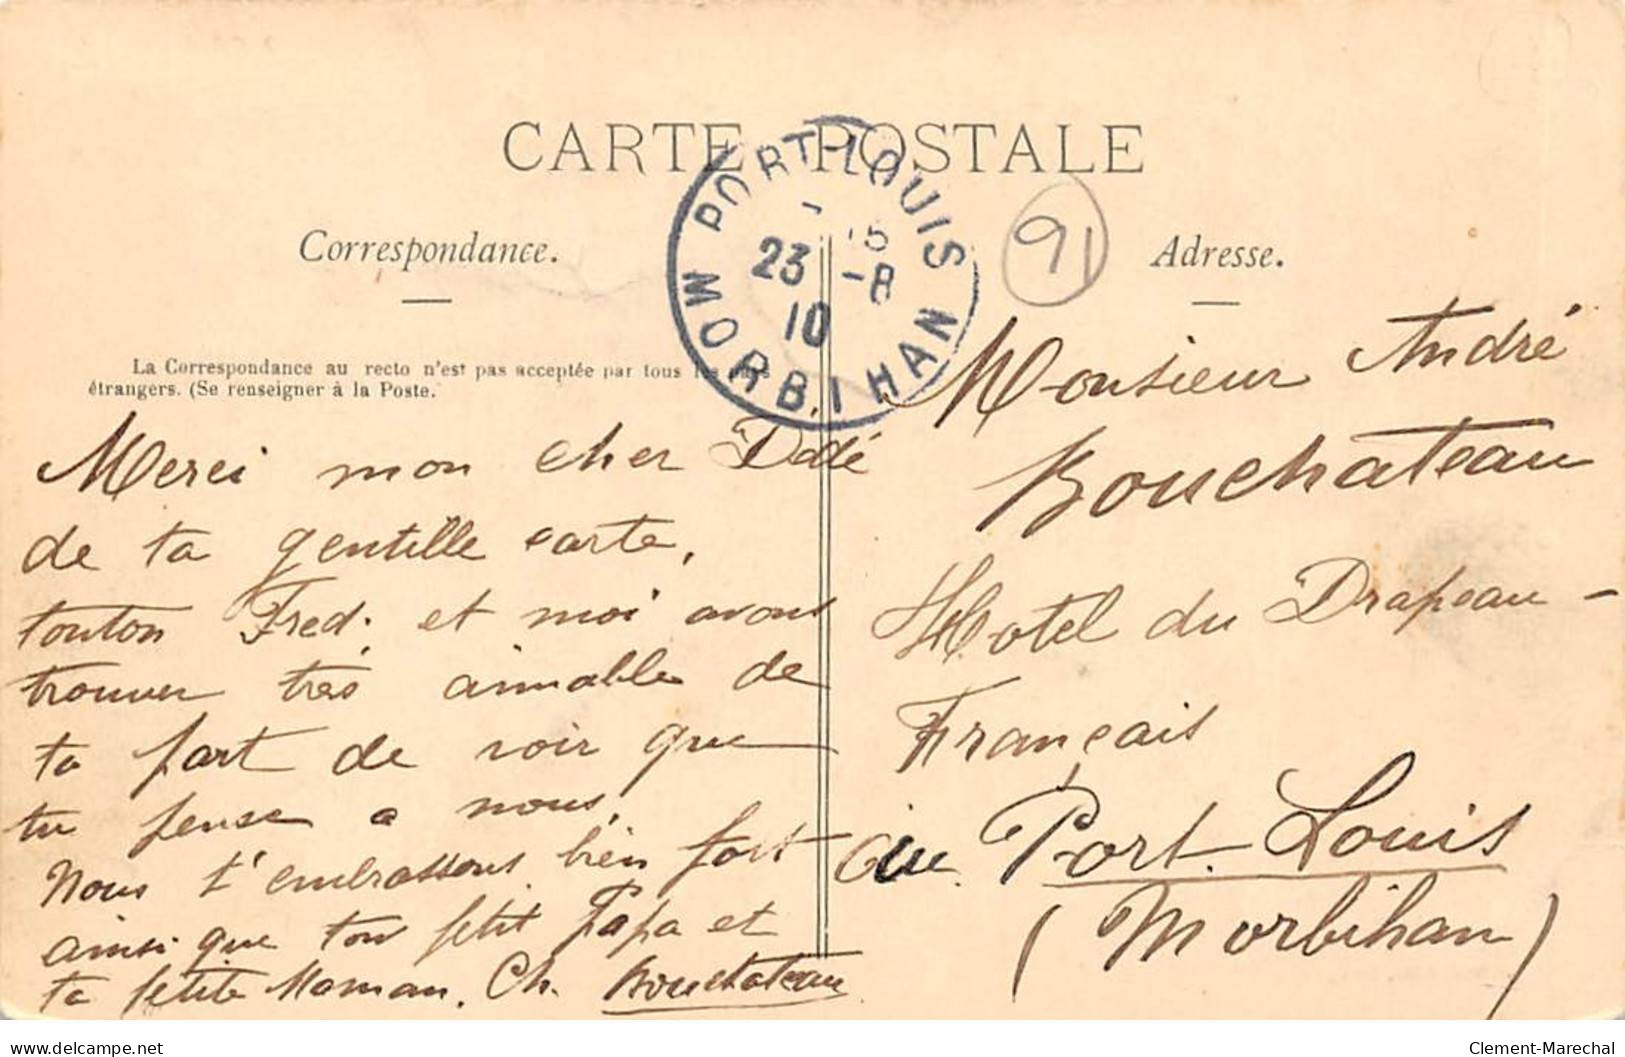 CARTE POSTALE
Correspondance.
Adresse.
La Correspondance au recto n'est pas acceptée par tous les pays
étrangers. (Se renseigner à la Poste.
PORT-LOUIS
15
23 -8
10
MORBIHAN
91
Merci mon cher Dédé
de ta gentille carte,
tonton Fred. et moi avons
trouver très aimable de
ta part de voir que
tu pense a nous,
Nous t'embrassons bien fort
ainsi que ton petit Papa et
ta petite Maman. Ch. Bouchateau
Monsieur André
Bouchateau
Hotel du Drapeau-
Français
au Port-Louis
(Morbihan)
delcampe.net
Clement-Marechal